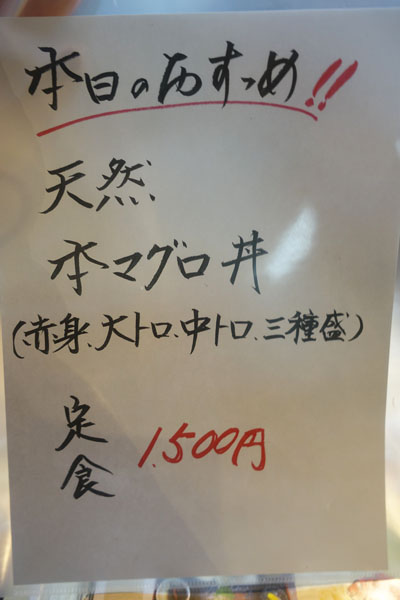 本日のおすすめ!!
天然
本マグロ丼
(赤身、大トロ、中トロ、三種盛)
定食 1,500円